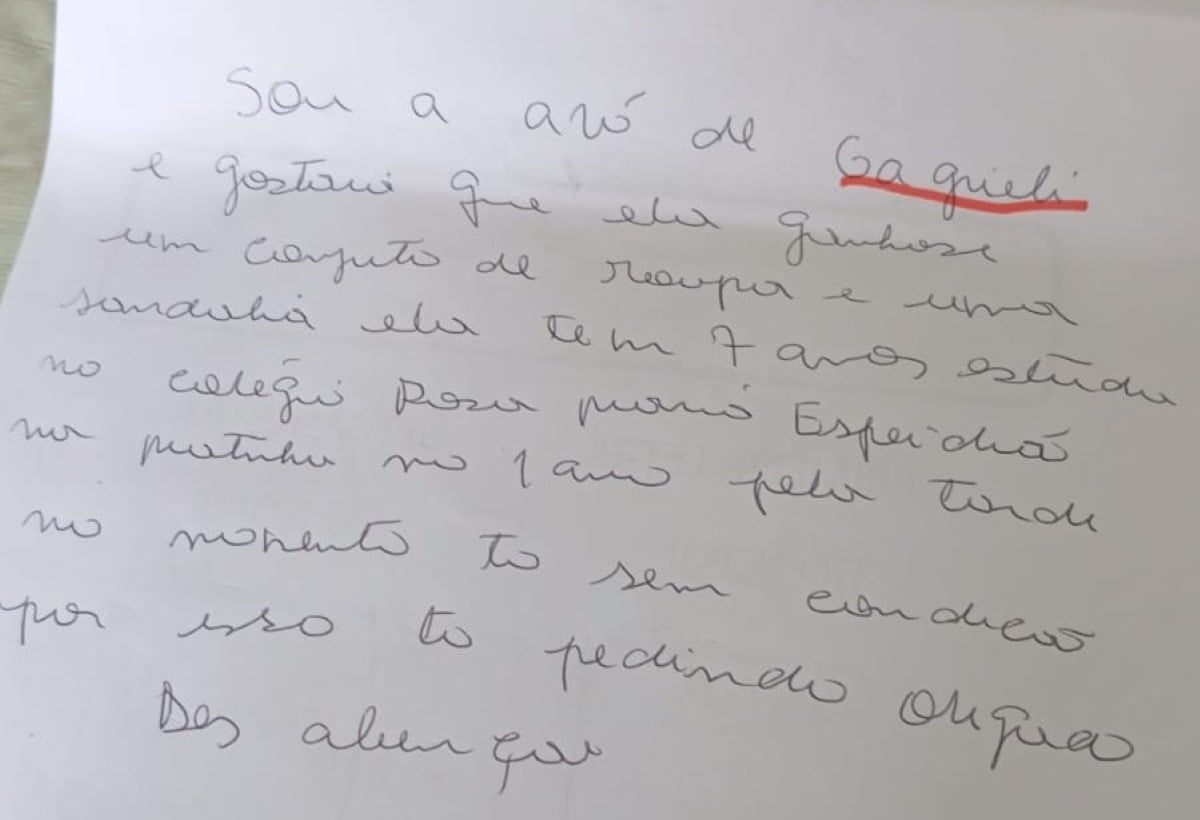 Sou a avó de Gagrieli
e gostari que ela ganhase
um conjuto de roupa e uma
sandalha ela tem 7 anos estuda
no colégi Rosa mariá Espeidiã
na matinha no 1 ano pela tarde
no momento to sem condicõ
por isso to pedindo
Des abençoa